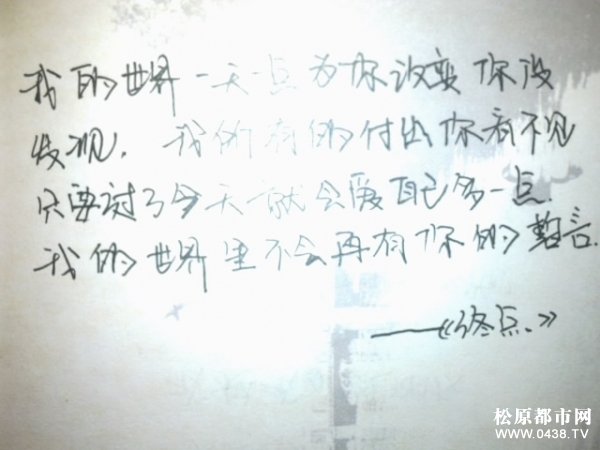 我的世界一天一点为你改变你没
发现. 我所有的付出你看不见
只要过了今天就会爱自己多一点.
我的世界里不会再有你的誓言.
——《终点.》
松原都市网
WWW.0438.TV